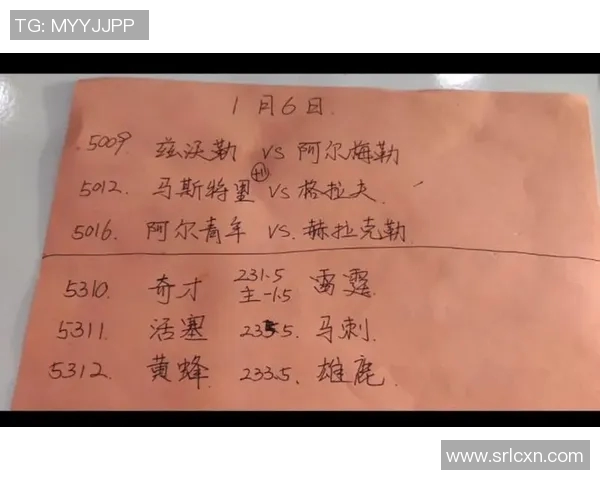 TG: MYYJJPP
1月6日.
5009. 兹沃勒 VS 阿尔梅勒
5012. 马斯特里 VS 格拉夫
5016. 阿尔青年 VS. 赫拉克勒
5310. 奇才 231.5 雷霆.
主-1.5
5311. 活塞 235.5. 马刺.
5312. 黄蜂 233.5. 雄鹿.
www.srlcxn.com